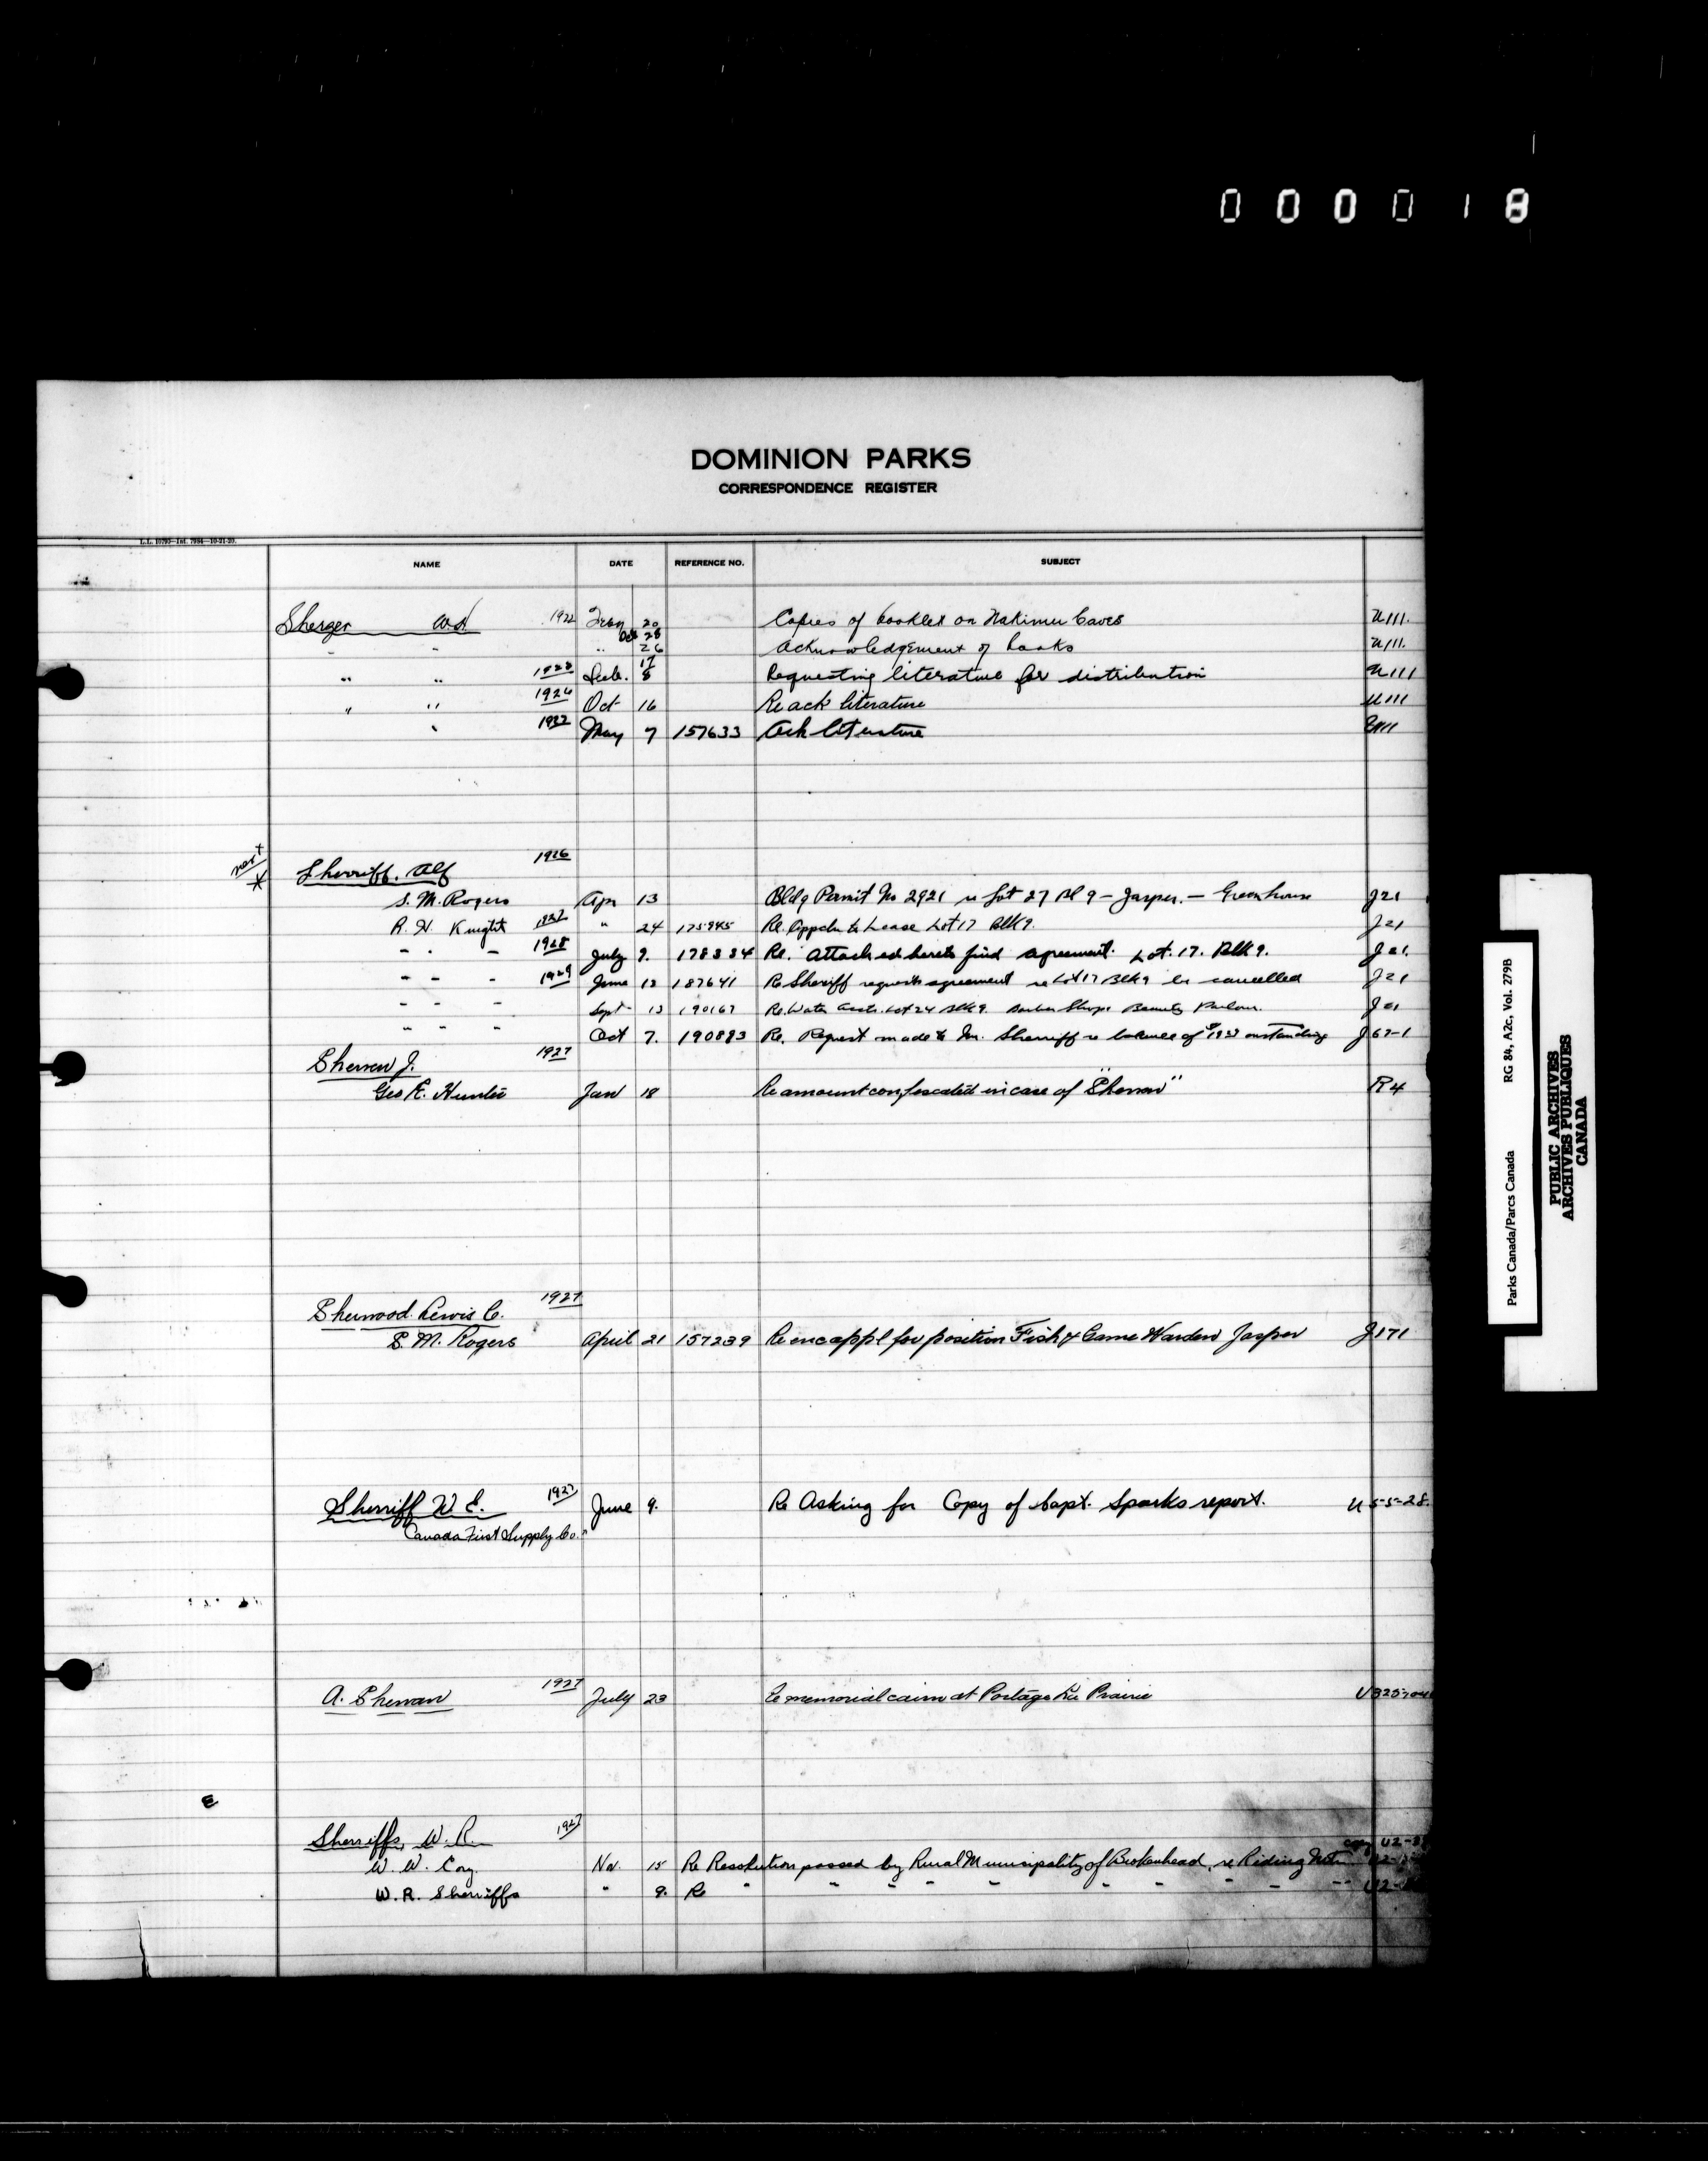 000018
DOMINION PARKS
CORRESPONDENCE REGISTER
L.L. 10795—Int. 7984—10-21-20.
NAME DATE REFERENCE NO. SUBJECT
Sherger 1922 20 Copies of booklet on Nakimu Caves U111.
Oct 28
" " " 26 Acknowledgement of books U111.
17
" " 1923 Feb. 8 Requesting literature for distribution U111
" " 1926 Oct 16 Re ack literature U111
" 1927 May 7 157633 Ack literature U111
next
Sherriff, Alf 1926
S. M. Rogers Apr 13 Bldg Permit No 2921 re Lot 27 Bl 9 - Jasper. - Greenhouse J21
R. H. Knight 1927 " 24 175945 Re. Appcln to Lease Lot 17 Blk 9. J21
" " " 1928 July 9. 178334 Re. Attached hereto find agreement. Lot. 17. Blk 9. J21.
" " " 1929 June 12 187641 Re Sheriff requests agreement re Lot 17 Blk 9 be cancelled J21
" " " Sept 13 190167 Re. Water Lot 24 Blk 9. Barber Shop & Beauty Parlour. J21
" " " Oct 7. 190883 Re. Request made to Mr. Sherriff re balance of outstanding J62-1
Sherrow J. 1927
Geo E. Hunter Jan 18 Re amount confescated in case of "Sherrow" R4
Sherwood. Lewis C. 1927
S. M. Rogers April 21 157239 Re enc appl for position Fish & Game Warden Jasper J171
Sherriff W. E. 1927 June 9. Re Asking for Copy of Capt. Sparks report. U5-5-28.
Canada First Supply Co."
A. Sherran 1927 July 23 Re memorial cairn at Portage La Prairie
E
Sherriffs, W. R. 1927 copy U2-
W. W. Cory. Nov. 15 Re Resolution passed by Rural Municipality of Brokenhead, re Riding Mtn
W. R. Sherriffs " 9. Re " " " " " " " " " "
Parks Canada/Parcs Canada RG 84, A2c, Vol. 279B
PUBLIC ARCHIVES
ARCHIVES PUBLIQUES
CANADA